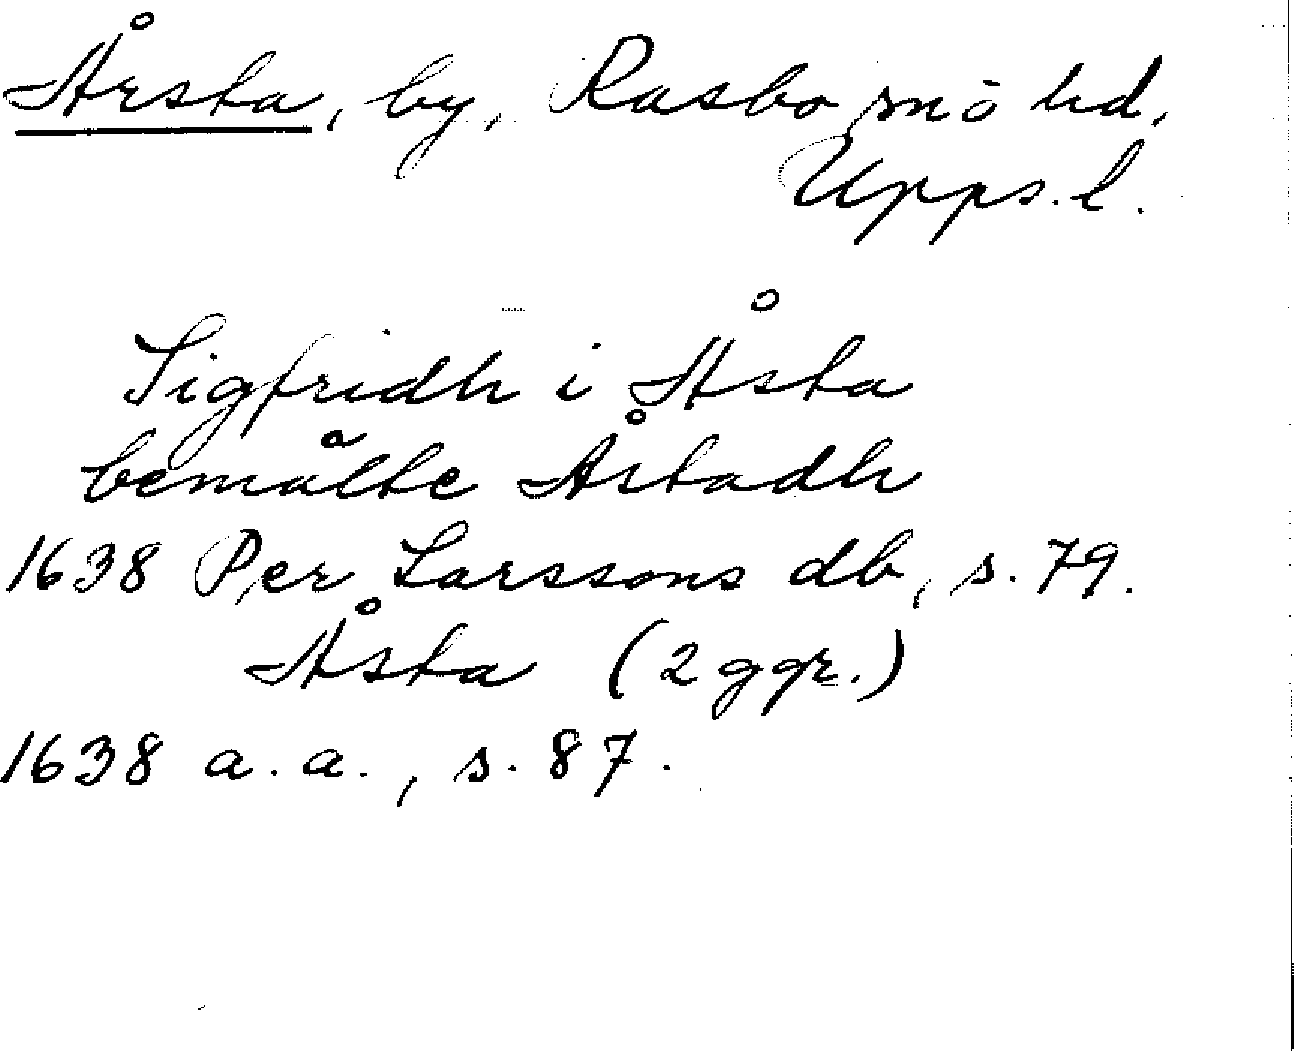 Årsta, by, Rasbo snö hd,
Upps. l.
Sigfridh i Åsta
bemålte Åstadh
1638 Per Larssons db, s. 79.
Åsta (2 ggr.)
1638 a. a., s. 87.